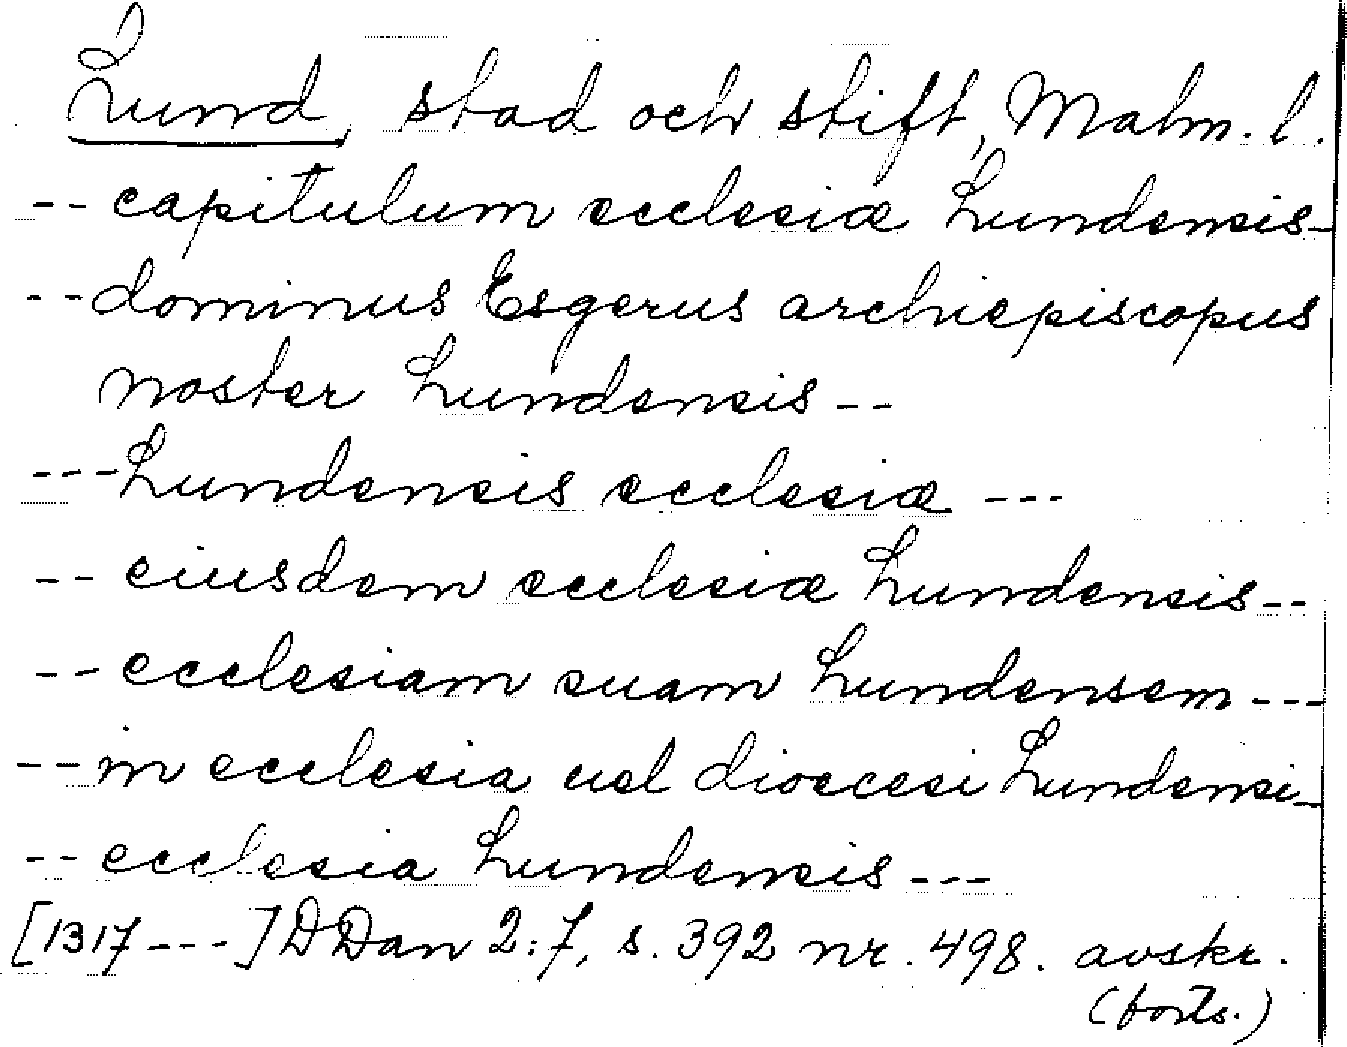 Lund, stad och stift, Malm. l.
-- capitulum ecclesiæ Lundensis -
-- dominus Esgerus archiepiscopus
noster Lundensis --
--- Lundensis ecclesiæ ---
-- eiusdem ecclesiæ Lundensis --
-- ecclesiam suam Lundensem ---
-- in ecclesia uel diocesi Lundensi -
-- ecclesia Lundensis ---
[1317 ---] DDan 2:7, s. 392 nr. 498. avskr.
(forts.)